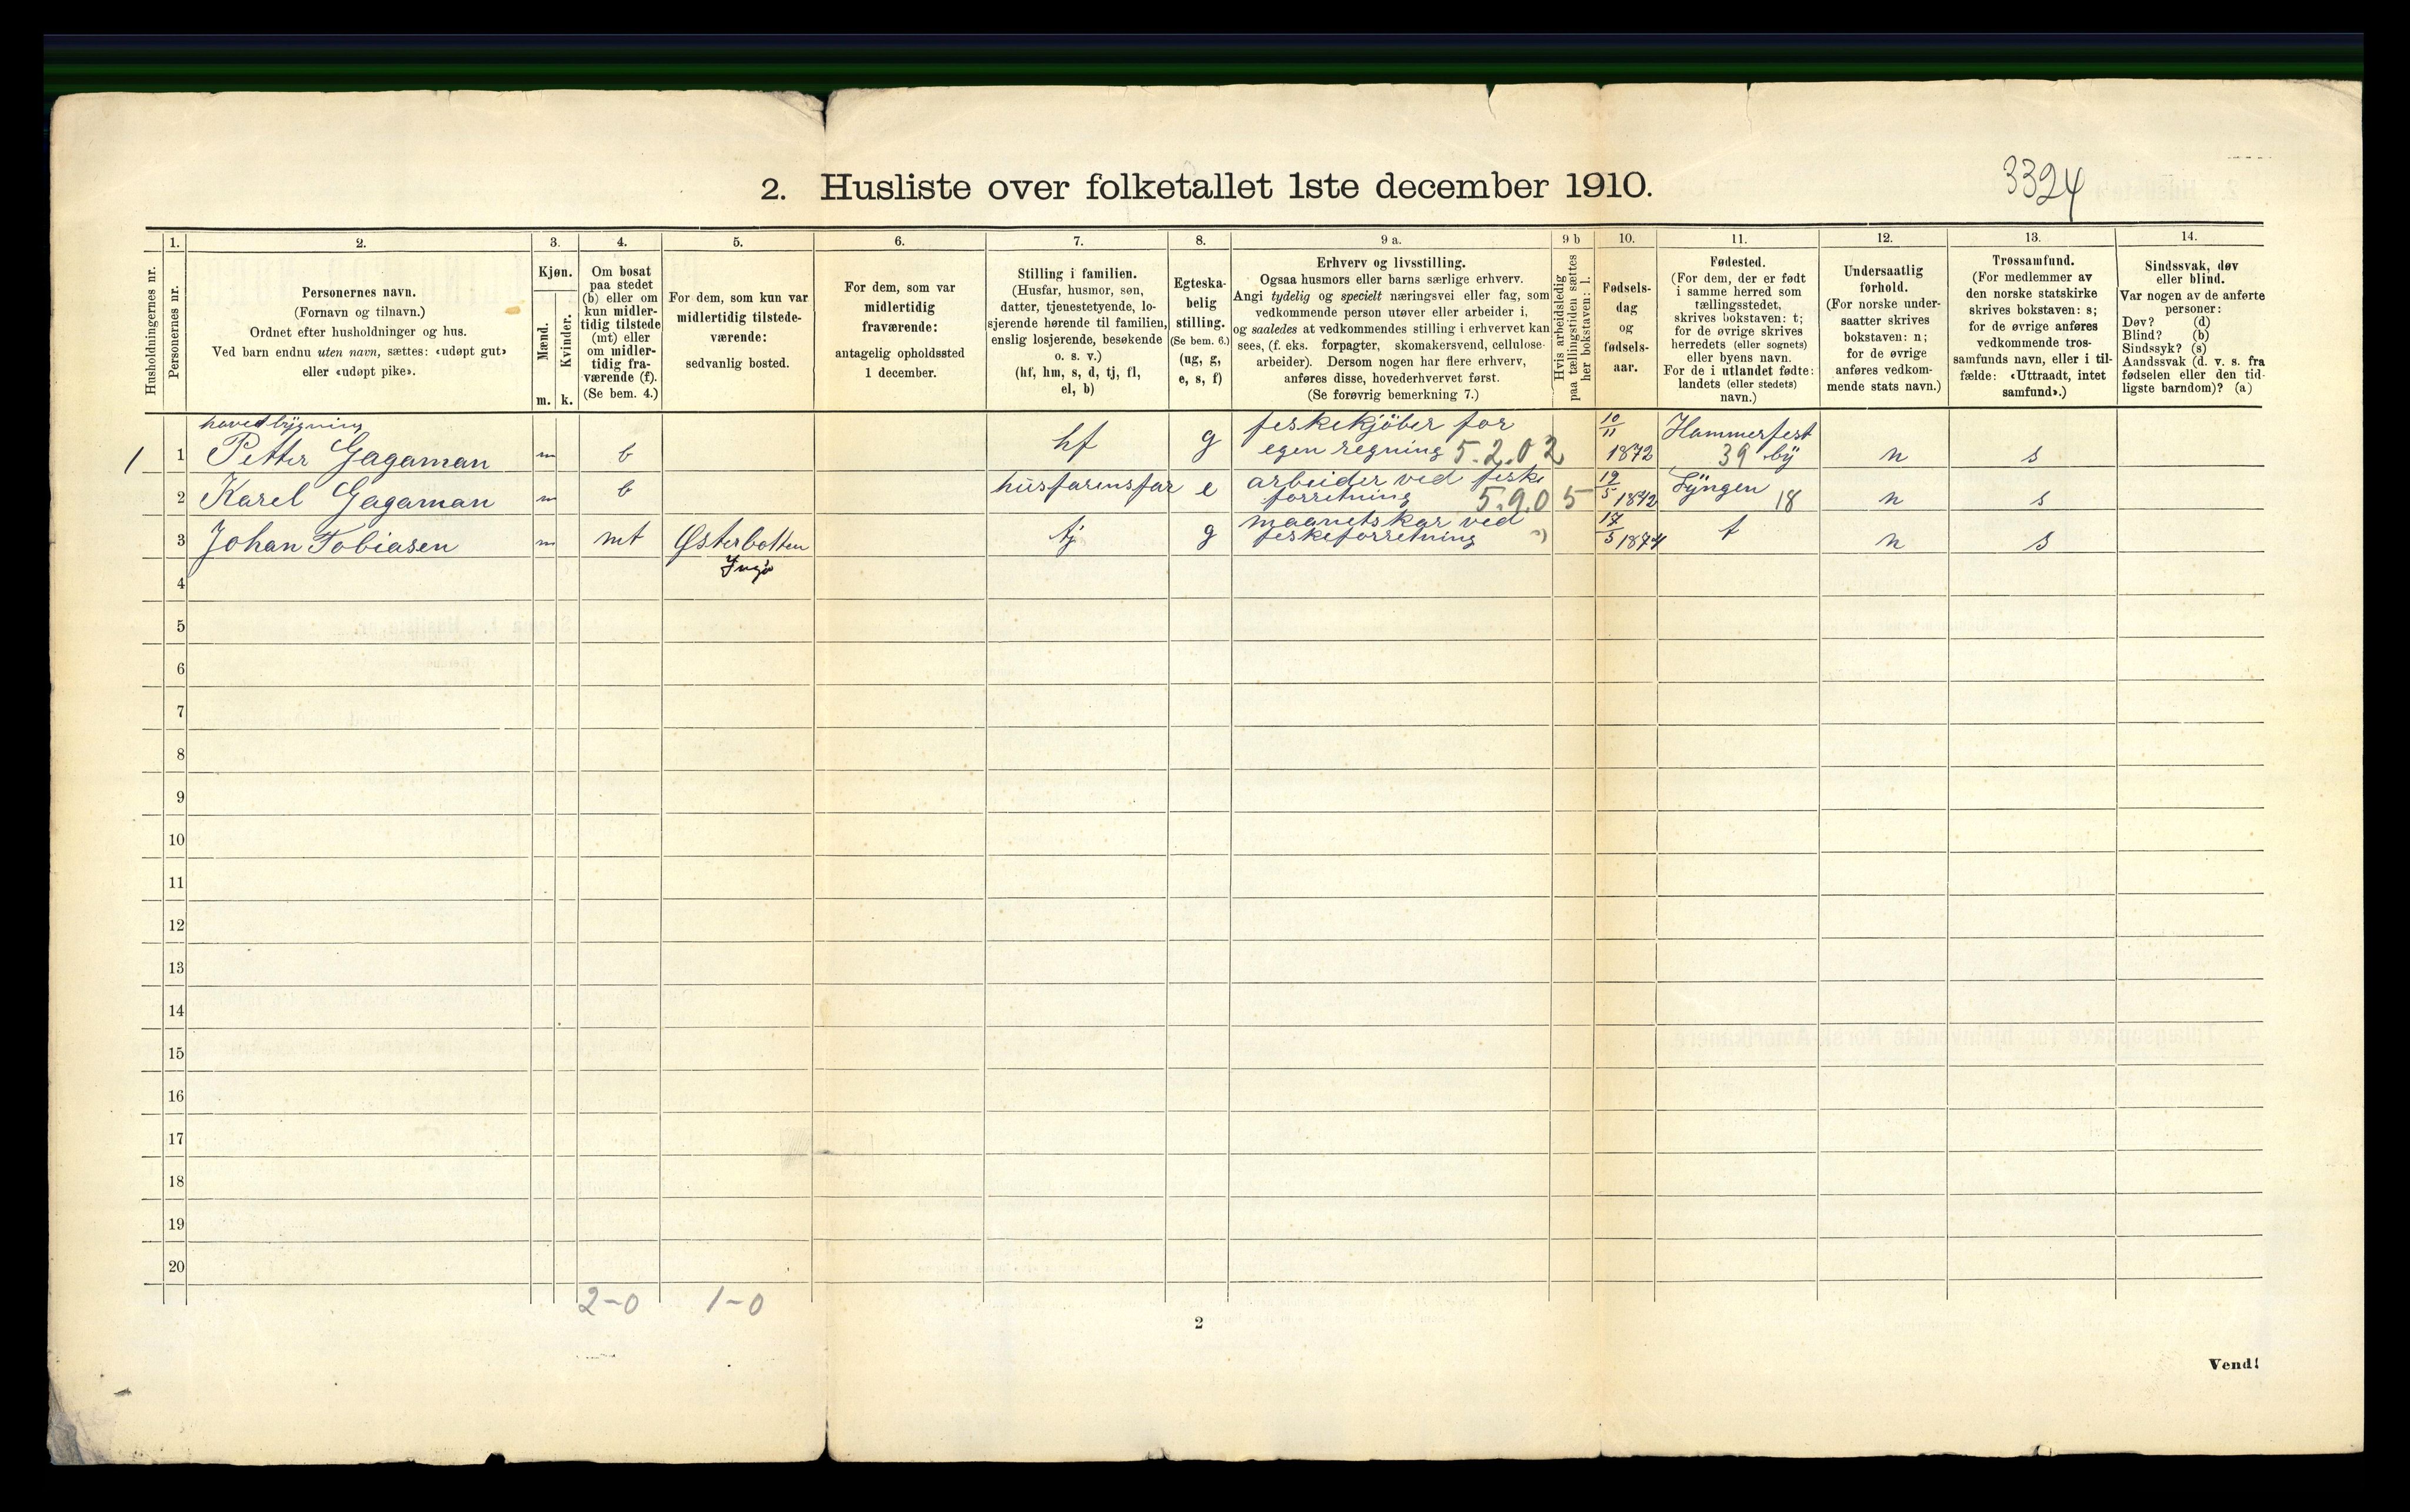 2. Husliste over folketallet 1ste december 1910.
3324
Husholdningernes nr.
1.
Personernes nr.
2.
Personernes navn.
(Fornavn og tilnavn.)
Ordnet efter husholdninger og hus.
Ved barn endnu uten navn, sættes: «udøpt gut»
eller «udøpt pike».
3.
Kjøn.
Mænd.
Kvinder.
m. k.
4.
Om bosat
paa stedet
(b) eller om
kun midler-
tidig tilstede
(mt) eller
om midler-
tidig fra-
værende (f).
(Se bem. 4.)
5.
For dem, som kun var
midlertidig tilstede-
værende:
sedvanlig bosted.
6.
For dem, som var
midlertidig
fraværende:
antagelig opholdssted
1 december.
7.
Stilling i familien.
(Husfar, husmor, søn,
datter, tjenestetyende, lo-
sjerende hørende til familien,
enslig losjerende, besøkende
o. s. v.)
(hf, hm, s, d, tj, fl,
el, b)
8.
Egteska-
belig
stilling.
(Se bem. 6.)
(ug, g,
e, s, f)
9 a.
Erhverv og livsstilling.
Ogsaa husmors eller barns særlige erhverv.
Angi tydelig og specielt næringsvei eller fag, som
vedkommende person utøver eller arbeider i,
og saaledes at vedkommendes stilling i erhvervet kan
sees, (f. eks. forpagter, skomakersvend, cellulose-
arbeider). Dersom nogen har flere erhverv,
anføres disse, hovederhvervet først.
(Se forøvrig bemerkning 7.)
9 b
Hvis arbeidsledig
paa tællingstiden sættes
her bokstaven: l.
10.
Fødsels-
dag
og
fødsels-
aar.
11.
Fødested.
(For dem, der er født
i samme herred som
tællingsstedet,
skrives bokstaven: t;
for de øvrige skrives
herredets (eller sognets)
eller byens navn.
For de i utlandet fødte:
landets (eller stedets)
navn.)
12.
Undersaatlig
forhold.
(For norske under-
saatter skrives
bokstaven: n;
for de øvrige
anføres vedkom-
mende stats navn.)
13.
Trossamfund.
(For medlemmer av
den norske statskirke
skrives bokstaven: s;
for de øvrige anføres
vedkommende tros-
samfunds navn, eller i til-
fælde: «Uttraadt, intet
samfund».)
14.
Sindssvak, døv
eller blind.
Var nogen av de anførte
personer:
Døv? (d)
Blind? (b)
Sindssyk? (s)
Aandssvak (d. v. s. fra
fødselen eller den tid-
ligste barndom)? (a)
hovedbygning
1 1 Petter Gagaman m b hf g feskekjöber for egen regning 5.2.02 10/11 1872 Hammerfest 39 by n s
2 Karel Gagaman m b husfarensfar e arbeider ved feske forretning 5.9.05 19/5 1842 Lyngen 18 n s
3 Johan Tobiasen m mt Østerbotten tj g maanetskar ved feskeforretning 17/3 1874 t n s
Ingø
4
5
6
7
8
9
10
11
12
13
14
15
16
17
18
19
20
2-0 1-0
2
Vend!